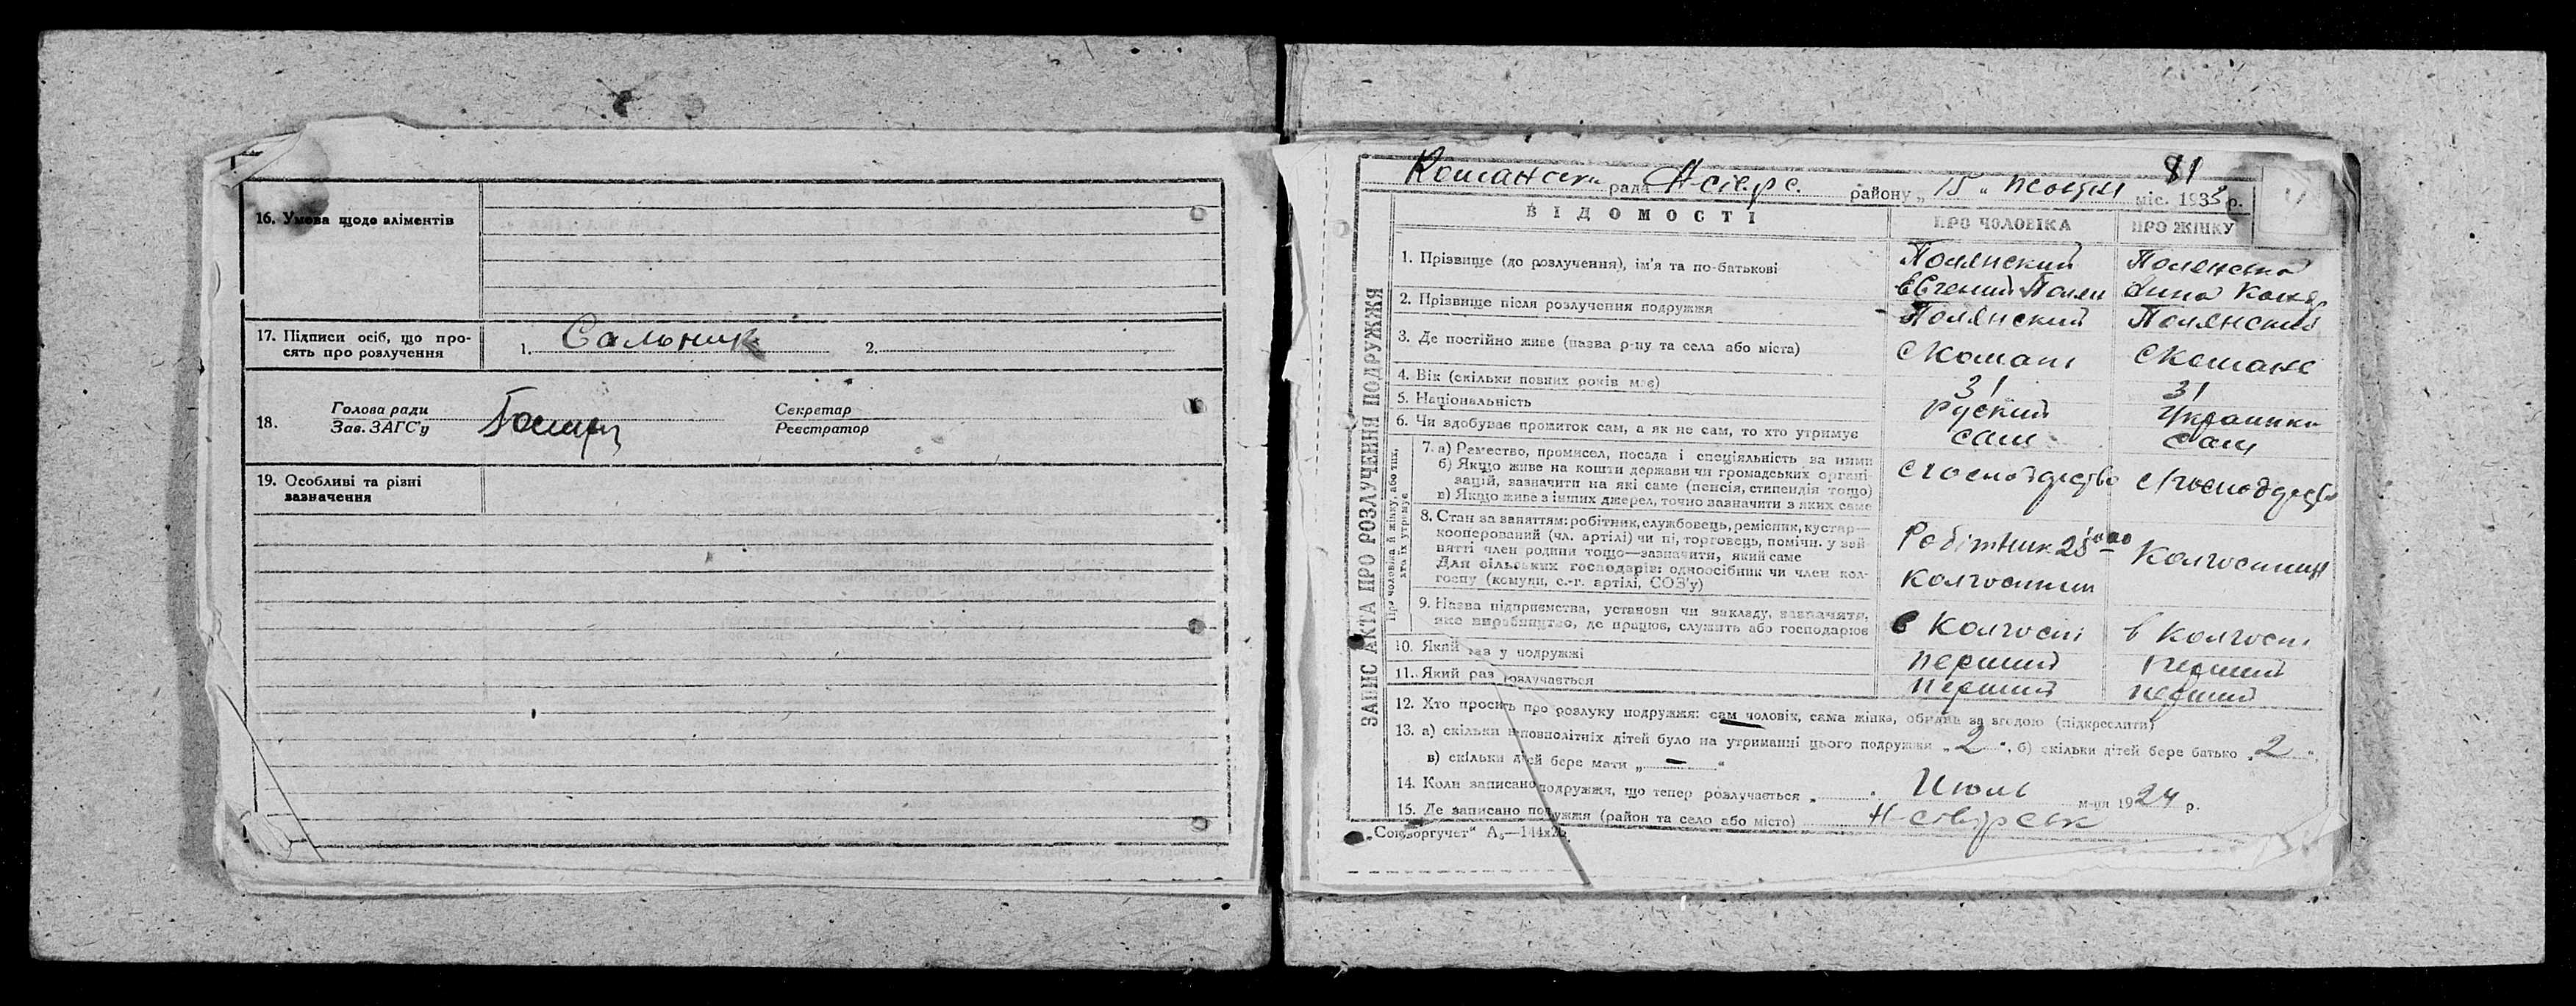 16. Умова щодо аліментів
17. Підписи осіб, що про-
сять про розлучення
1. Сальник 2.
18. Голова ради
Зав. ЗАГС'у
Секретар
Реєстратор
19. Особливі та різні
зазначення
81
рада Н-сіверс. району „ 15 „ міс. 1933 р.
ЗАПИС АКТА ПРО РОЗЛУЧЕННЯ ПОДРУЖЖЯ
ВІДОМОСТІ ПРО ЧОЛОВІКА ПРО ЖІНКУ
1. Прізвище (до розлучення), ім'я та по-батькові Полянский Полянська
Євгений Анна
2. Прізвище після розлучення подружжя Полянский Полянская
3. Де постійно живе (назва р-ну та села або міста)
4. Вік (скільки повних років має) 31 31
5. Національність руский Украинка
6. Чи здобуває прожиток сам, а як не сам, то хто утримує сам сам
Про чоловіка й жінку, або тих, хто їх утримує
7. а) Ремество, промисел, посада і спеціяльність за ними
б) Якщо живе на кошти держави чи громадських органі-
зацій, зазначити на які саме (пенсія, стипендія тощо)
в) Якщо живе з інших джерел, точно зазначити з яких саме
8. Стан за заняттям: робітник, службовець, ремісник, кустар—
кооперований (чл. артілі) чи ні, торговець, помічн. у зай-
нятті член родини тощо—зазначити, який саме
Для сільських господарів: одноосібник чи член кол-
госпу (комуни, с.-г. артілі, СОЗ'у)
Робітник
колгоспник
9. Назва підприємства, установи чи закладу, зазначити,
яке виробництво, де працює, служить або господарює
в Колгоспі в Колгоспі
10. Який раз у подружжі перший перший
11. Який раз розлучається перший перший
12. Хто просить про розлуку подружжя: сам чоловік, сама жінка, обидва за згодою (підкреслити)
13. а) скільки неповнолітніх дітей було на утриманні цього подружжя „ 2 “, б) скільки дітей бере батько „ 2 “,
в) скільки дітей бере мати „ — “
14. Коли записано подружжя, що тепер розлучається „ “ Июль м-ця 1924 р.
15. Де записано подружжя (район та село або місто) Н-сіверськ
„Союзоргучет“ А₅—144х2